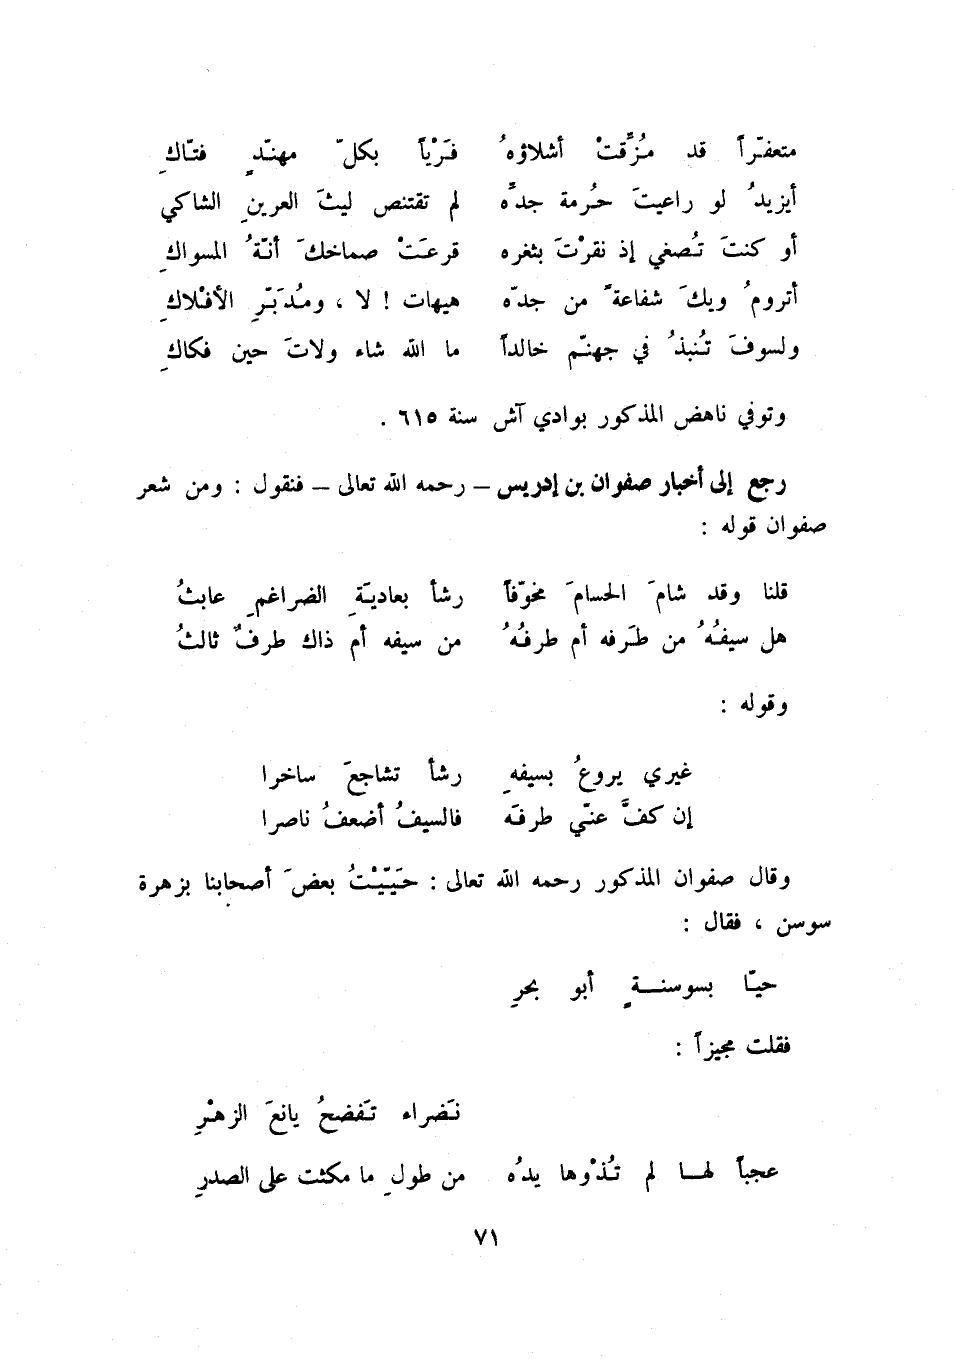 متعفّراً قد مُزِّقتْ أشلاؤهُ فَرْياً بكلّ مهنّدٍ فتّاكِ
أيزيدُ لو راعيتَ حُرمة جدِّه لم تقتنص ليثَ العرينِ الشاكي
أو كنتَ تُصغي إذ نقرْتَ بثغره قرعَتْ صماخكَ أنّةُ المسواكِ
أترومُ ويكَ شفاعةً من جدّه هيهات ! لا ، ومُدَبّرِ الأفْلاكِ
ولسوفَ تُنبذُ في جهنّم خالداً ما الله شاء ولاتَ حين فكاكِ
وتوفي ناهض المذكور بوادي آش سنة ٦١٥ .
رجع إلى أخبار صفوان بن إدريس – رحمه الله تعالى – فنقول : ومن شعر
صفوان قوله :
قلنا وقد شامَ الحسامَ مخوّفاً رشأ بعاديَةِ الضراغمِ عابثُ
هل سيفُهُ من طَرفه أم طرفُهُ من سيفه أم ذاك طرفٌ ثالثُ
وقوله :
غيري يروعُ بسيفهِ رشأ تشاجعَ ساخرا
إن كفَّ عنّي طرفَه فالسيفُ أضعفُ ناصرا
وقال صفوان المذكور رحمه الله تعالى : حَيّيْتُ بعضَ أصحابنا بزهرة
سوسن ، فقال :
حيّا بسوسنـــةٍ أبو بحرِ
فقلت مجيزاً :
نَضراء تَفضحُ يانعَ الزهْرِ
عجباً لهــا لم تُذْوها يدُه من طولِ ما مكثت على الصدرِ
٧١